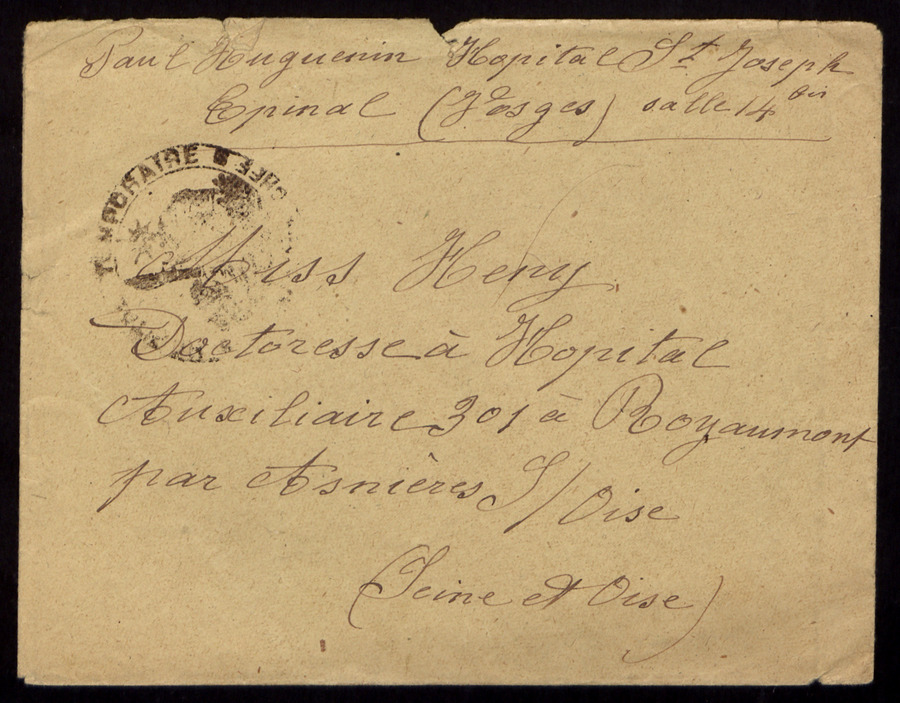 Paul Huguenin Hopital St Joseph
Epinal (Vosges) salle 14 bis
TEMPORAIRE
Miss Heny
Doctoresse à Hopital
Auxiliaire 301 à Royaumont
par Asnières S/Oise
(Seine et Oise)